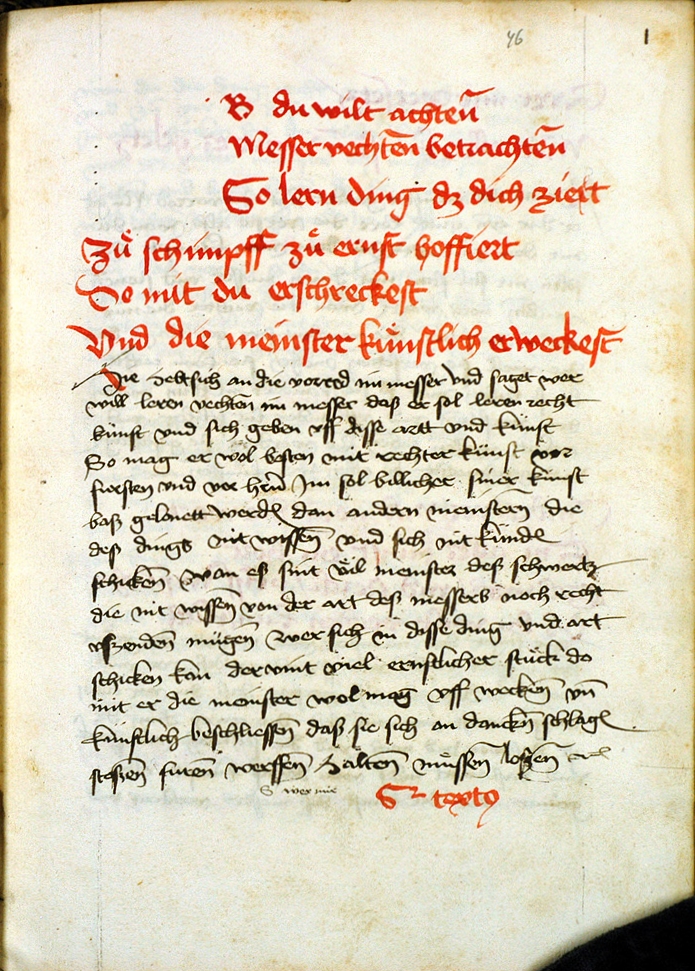 46
1
B du wilt achteñ
Messer vechten betrachteñ
So lern ding dz dich ziert
Zů schimpff zů ernst hoffiert
Do mit du erschreckest
Vnd die meinster kůnstlich erweckest
Hie hebt sich an die vorred im messer vnd saget wer
will leren vechten im messer daß er sol leren recht
kůnst vnd sich geben vff disse artt vnd kůnst
So mag er wol besten mit rechter kůnst vor
fürsten vnd vor herñ Im sol billicher siner kůnst
baß gelonett werden dan andern meinstern die
deß dings nit wissen vnd sich nit kunden
schicken wan eß sint vil meinster deß schwertz
die nit wissen von der art deß messers noch recht
vßzenden mügen Wer sich in disse ding vnd art
schicken kan der vint viel ernstlicher stuck do
mit er die meinster wol mag vff wecken vñ
künstlich beschliessen daß sie sich an dancken schlagen
stossen furen werffen halten müssen lossen
S wer mir
Sr texto